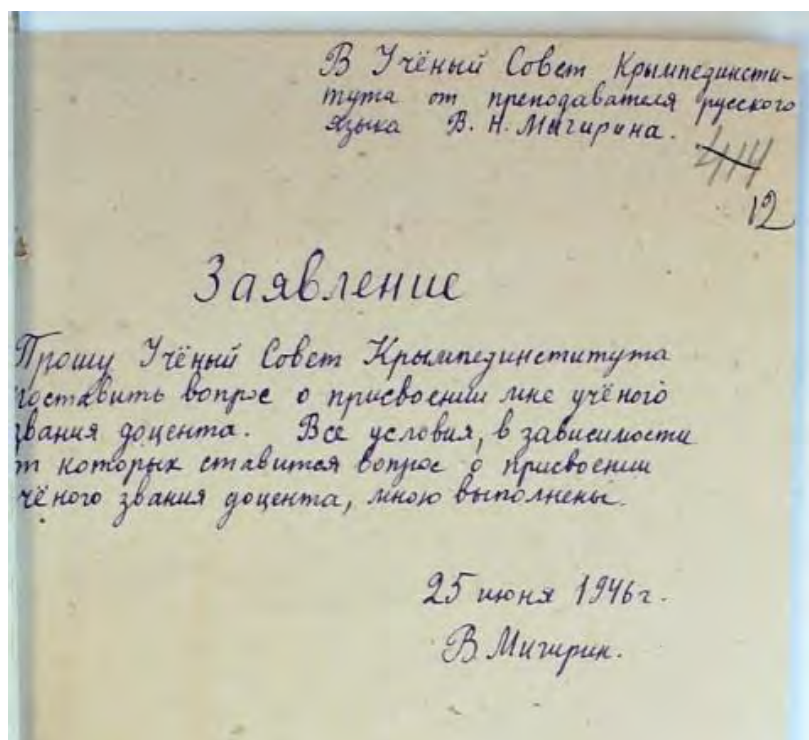 В Учёный Совет Крымпединсти-
тута от преподавателя русского
языка В. Н. Мигирина.
414
12
Заявление
Прошу Учёный Совет Крымпединститута
поставить вопрос о присвоении мне учёного
звания доцента. Все условия, в зависимости
от которых ставится вопрос о присвоении
учёного звания доцента, мною выполнены.
25 июня 1946 г.
В. Мигирин.